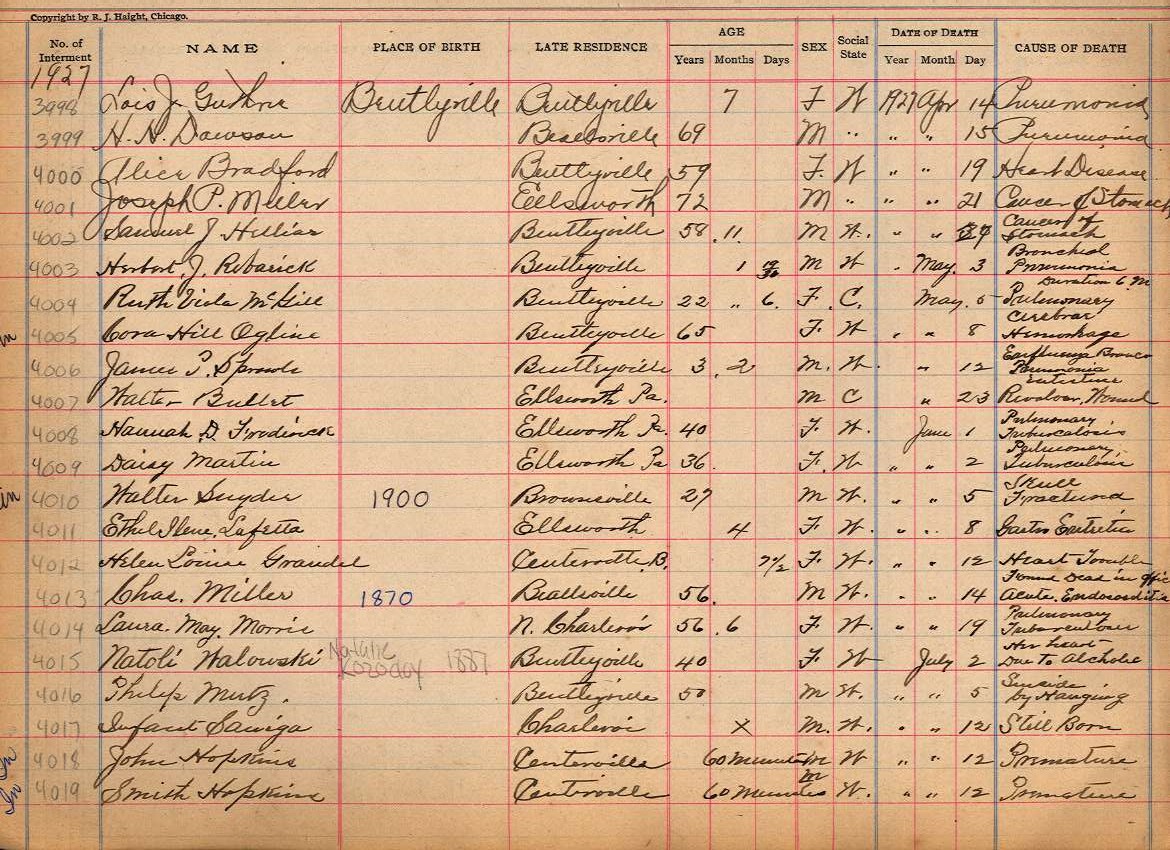 Copyright by R. J. Haight, Chicago.
No. of Interment NAME PLACE OF BIRTH LATE RESIDENCE AGE Years Months Days SEX Social State DATE OF DEATH Year Month Day CAUSE OF DEATH
1927
3998 Lois J. Guthrie Bentlyville Bentlyville 7 F W 1927 Apr 14 Pneumonia
3999 H. H. Dawson 69 M " " " 15 Pneumonia
4000 Alice Bradford Bentleyville 59 F. W " " 19 Heart Disease
4001 Joseph P. Miller Ellsworth 72 M " " " 21 Cancer of Stomach
4002 Samuel J. Hilliar Bentleyville 58 11. M W. " " Cancer of Stomach
4003 Herbert J. Rebarick Bentleyville 1 19/30 M W " May. 3 Bronchial Pneumonia Duration 6
4004 Ruth Viola McGill Bentleyville 22 " 6. F. C. May. 5 Pulmonary
4005 Cora Hill Ogline Bentleyville 65 F. W " " 8 Cerebrar Hemorhage
4006 James T. Sprowls Bentleyville 3 2 M. W. " 12 Bronco Pneumonia
4007 Walter Bullet Ellsworth Pa. M C " 23 Revolver Wound
4008 Hannah D. Frederick Ellsworth Pa. 40 F. W. June 1 Pulmonary Tuburcalosis
4009 Daisy Martin Ellsworth Pa 36. F. W " " 2 Pulmonary Tuburculosis
in 4010 Walter Snyder 1900 Brownsville 27 M W. " " 5 Skull Fractured
4011 Ethel Ilene Lafetta Ellsworth 4 F W. " " 8 Gastro
4012 Helen Louise Graindel Centerville B. 7 1/2 F. W. " " 12 Heart Trouble
4013 Chas. Miller 1870 Beallsville 56. M W. " " 14 Found Dead in Office Acute Endocarditis
4014 Laura May Morris N. Charleroi 56 6 F W. " " 19 Pulmonary Tuburculosis
4015 Natoli Walowski Natalie Kozodoy 1887 Bentleyville 40 F W July 2 Her heart Due to Alcholic
4016 Philip Mutz. Bentleyville 50 M W. " " 5 Suicide by Hanging
4017 Infant Saniga Charleroi X M. W. " " 12 Still Born
In 4018 John Hopkins Centerville 60 Minutes M W " " 12 Premature
In 4019 Smith Hopkins Centerville 60 Minutes M W. " " 12 Premature